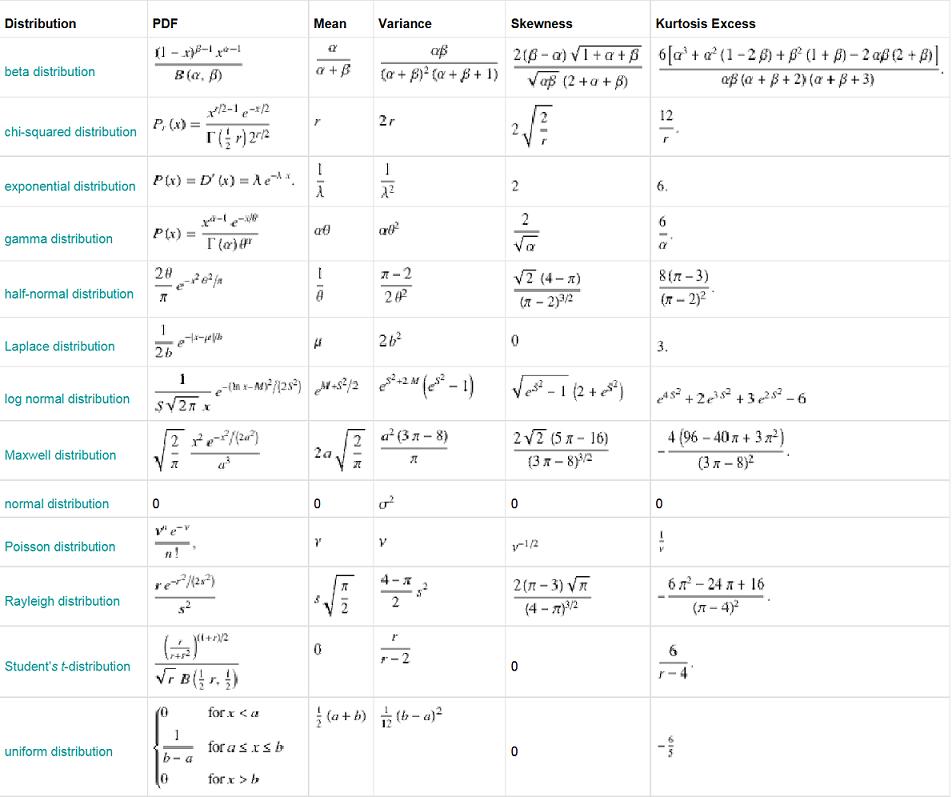 Distribution PDF Mean Variance Skewness Kurtosis Excess
beta distribution (1 − x)^(β−1) x^(α−1) / B(α, β) α / (α + β) αβ / ((α + β)² (α + β + 1)) 2(β − α) √(1 + α + β) / (√(αβ) (2 + α + β)) 6[α³ + α² (1 − 2β) + β² (1 + β) − 2αβ(2 + β)] / (αβ(α + β + 2)(α + β + 3)).
chi-squared distribution P_r (x) = x^(r/2−1) e^(−x/2) / (Γ(½ r) 2^(r/2)) r 2r 2√(2/r) 12/r.
exponential distribution P(x) = D′(x) = λe^(−λx). 1/λ 1/λ² 2 6.
gamma distribution P(x) = x^(α−1) e^(−x/θ) / (Γ(α) θ^α) αθ αθ² 2/√α 6/α.
half-normal distribution 2θ/π e^(−x² θ²/π) 1/θ (π − 2) / (2θ²) √2 (4 − π) / (π − 2)^(3/2) 8(π − 3) / (π − 2)².
Laplace distribution 1/(2b) e^(−|x−μ|/b) μ 2b² 0 3.
log normal distribution 1/(S√(2π) x) e^(−(ln x−M)²/(2S²)) e^(M+S²/2) e^(S²+2M) (e^(S²) − 1) √(e^(S²) − 1) (2 + e^(S²)) e^(4S²) + 2e^(3S²) + 3e^(2S²) − 6
Maxwell distribution √(2/π) x² e^(−x²/(2a²)) / a³ 2a√(2/π) a² (3π − 8) / π 2√2 (5π − 16) / (3π − 8)^(3/2) −4(96 − 40π + 3π²) / (3π − 8)².
normal distribution 0 0 σ² 0 0
Poisson distribution ν^n e^(−ν) / n!, ν ν ν^(−1/2) 1/ν
Rayleigh distribution r e^(−r²/(2s²)) / s² s√(π/2) (4 − π)/2 s² 2(π − 3) √π / (4 − π)^(3/2) −(6π² − 24π + 16) / (π − 4)².
Student's t-distribution (r/(r+t²))^((1+r)/2) / (√r B(½ r, ½)) 0 r / (r − 2) 0 6 / (r − 4).
uniform distribution {0 for x < a ½ (a + b) 1/12 (b − a)² 0 −6/5
1/(b − a) for a ≤ x ≤ b
0 for x > b